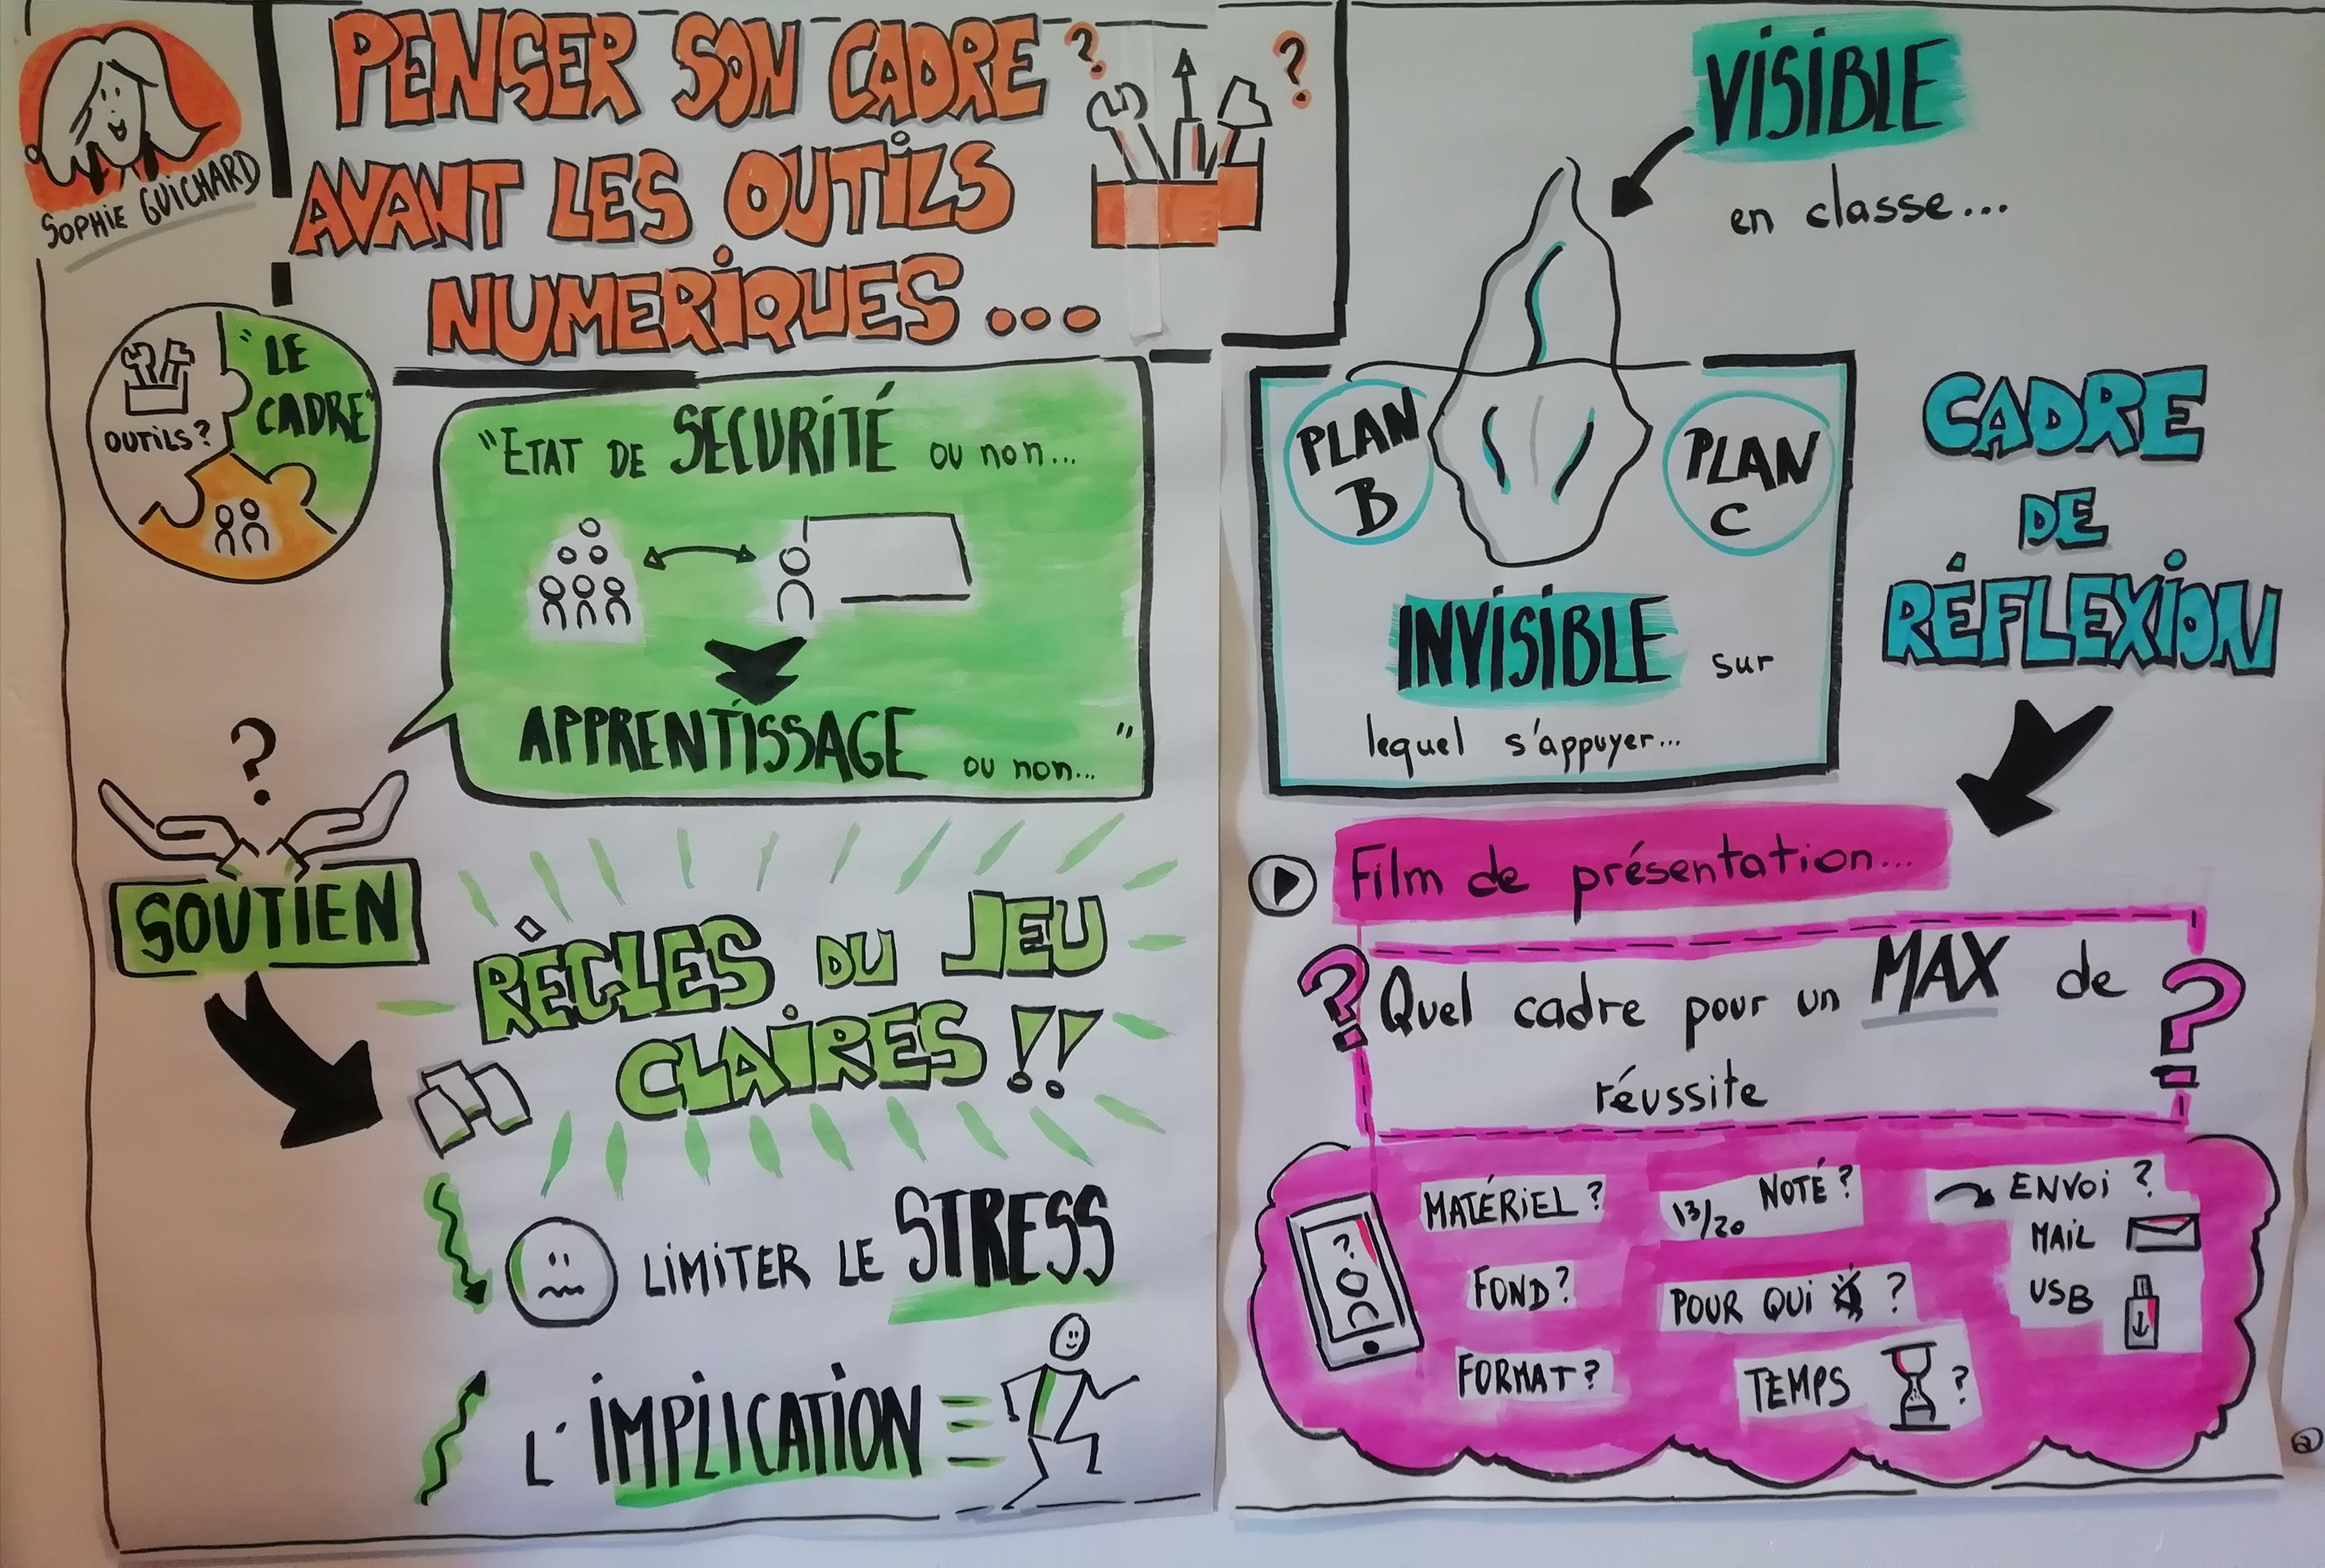 SOPHIE GUICHARD
PENSER SON CADRE ? ?
AVANT LES OUTILS
NUMERIQUES...
OUTILS?
"LE
CADRE"
"ETAT DE SECURITÉ ou non...
APPRENTISSAGE ou non... "
?
SOUTIEN
RÈGLES DU JEU
CLAIRES !!
LIMITER LE STRESS
L'IMPLICATION
VISIBLE
en classe...
PLAN
B
PLAN
C
INVISIBLE sur
lequel s'appuyer...
CADRE
DE
RÉFLEXION
Film de présentation...
? Quel cadre pour un MAX de ?
réussite
MATÉRIEL ?
FOND ?
FORMAT ?
13/20 NOTÉ ?
POUR QUI ?
TEMPS ?
ENVOI ?
MAIL
USB